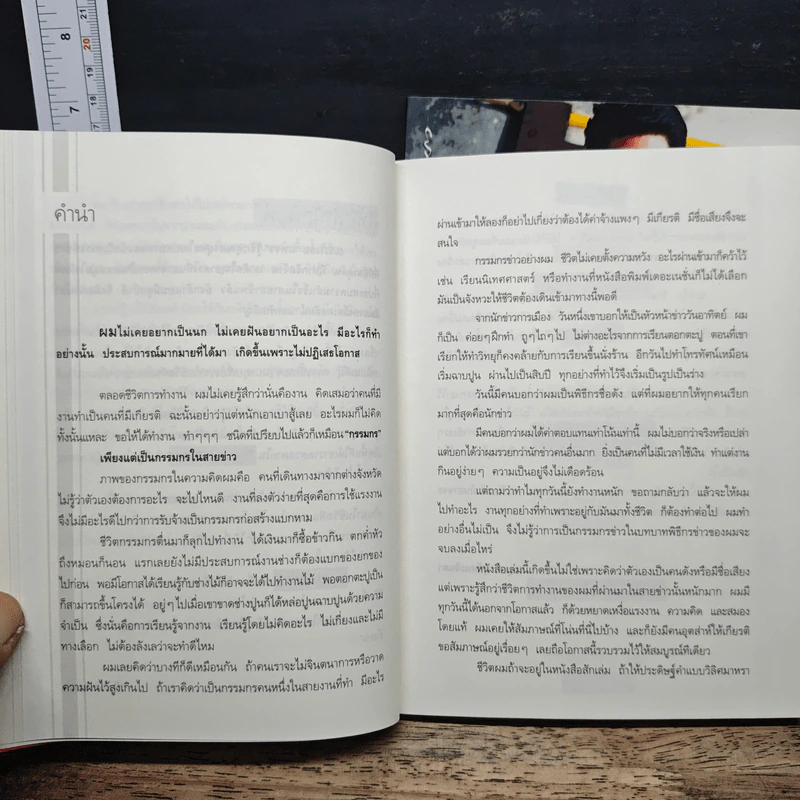 8
21
20
19
7
18
17
คำนำ
ผมไม่เคยอยากเป็นนก ไม่เคยฝันอยากเป็นอะไร มีอะไรก็ทำ
อย่างนั้น ประสบการณ์มากมายที่ได้มา เกิดขึ้นเพราะไม่ปฏิเสธโอกาส
ตลอดชีวิตการทำงาน ผมไม่เคยรู้สึกว่านั่นคืองาน คิดเสมอว่าคนที่มี
งานทำเป็นคนที่มีเกียรติ ฉะนั้นอย่าว่าแต่หนักเอาเบาสู้เลย อะไรผมก็ไม่คิด
ทั้งนั้นแหละ ขอให้ได้ทำงาน ทำๆๆๆ ชนิดที่เปรียบไปแล้วก็เหมือน “กรรมกร”
เพียงแต่เป็นกรรมกรในสายข่าว
ภาพของกรรมกรในความคิดผมคือ คนที่เดินทางมาจากต่างจังหวัด
ไม่รู้ว่าตัวเองต้องการอะไร จะไปไหนดี งานที่ลงตัวง่ายที่สุดคือการใช้แรงงาน
จึงไม่มีอะไรดีไปกว่าการรับจ้างเป็นกรรมกรก่อสร้างแบกหาม
ชีวิตกรรมกรตื่นมาก็ลุกไปทำงาน ได้เงินมาก็ซื้อข้าวกิน ตกค่ำหัว
ถึงหมอนก็นอน แรกเลยยังไม่มีประสบการณ์งานช่างก็ต้องแบกของยกของ
ไปก่อน พอมีโอกาสได้เรียนรู้กับช่างไม้ก็อาจจะได้ไปทำงานไม้ พอตอกตะปูเป็น
ก็สามารถขึ้นโครงได้ อยู่ๆไปเมื่อเขาขาดช่างปูนก็ได้หล่อปูนฉาบปูนด้วยความ
จำเป็น ซึ่งนั่นคือการเรียนรู้จากงาน เรียนรู้โดยไม่คิดอะไร ไม่เกี่ยงและไม่มี
ทางเลือก ไม่ต้องลังเลว่าจะทำดีไหม
ผมเลยคิดว่าบางทีก็ดีเหมือนกัน ถ้าคนเราจะไม่จินตนาการหรือวาด
ความฝันไว้สูงเกินไป ถ้าเราคิดว่าเป็นกรรมกรคนหนึ่งในสายงานที่ทำ มีอะไร
ผ่านเข้ามาให้ลองก็อย่าไปเกี่ยงว่าต้องได้ค่าจ้างแพงๆ มีเกียรติ มีชื่อเสียงจึงจะ
สนใจ
กรรมกรข่าวอย่างผม ชีวิตไม่เคยตั้งความหวัง อะไรผ่านเข้ามาก็คว้าไว้
เช่น เรียนนิเทศศาสตร์ หรือทำงานที่หนังสือพิมพ์เดอะเนชั่นก็ไม่ได้เลือก
มันเป็นจังหวะให้ชีวิตต้องเดินเข้ามาทางนี้พอดี
จากนักข่าวการเมือง วันหนึ่งเขาบอกให้เป็นหัวหน้าข่าววันอาทิตย์ ผม
ก็เป็น ค่อยๆฝึกทำ ถูๆไถๆไป ไม่ต่างอะไรจากการเรียนตอกตะปู ตอนที่เขา
เรียกให้ทำวิทยุก็คงคล้ายกับการเรียนขึ้นนั่งร้าน อีกวันไปทำโทรทัศน์เหมือน
เริ่มฉาบปูน ผ่านไปเป็นสิบปี ทุกอย่างที่ทำไว้จึงเริ่มเป็นรูปเป็นร่าง
วันนี้มีคนบอกว่าผมเป็นพิธีกรชื่อดัง แต่ที่ผมอยากให้ทุกคนเรียก
มากที่สุดคือนักข่าว
มีคนบอกว่าผมได้ค่าตอบแทนเท่านั้นเท่านี้ ผมไม่บอกว่าจริงหรือเปล่า
แต่บอกได้ว่าผมรวยกว่านักข่าวคนอื่นมาก ยิ่งเป็นคนที่ไม่มีเวลาใช้เงิน ทำแต่งาน
กินอยู่ง่ายๆ ความเป็นอยู่จึงไม่เดือดร้อน
แต่ถามว่าทำไมทุกวันนี้ยังทำงานหนัก ขอถามกลับว่า แล้วจะให้ผม
ไปทำอะไร งานทุกอย่างที่ทำเพราะอยู่กับมันมาทั้งชีวิต ก็ต้องทำต่อไป ผมทำ
อย่างอื่นไม่เป็น จึงไม่รู้ว่าการเป็นกรรมกรข่าวในบทบาทพิธีกรข่าวของผมจะ
จบลงเมื่อไหร่
หนังสือเล่มนี้เกิดขึ้นไม่ใช่เพราะคิดว่าตัวเองเป็นคนดังหรือมีชื่อเสียง
แต่เพราะรู้สึกว่าชีวิตการทำงานของผมที่ผ่านมาในสายข่าวนั้นหนักมาก ผมมี
ทุกวันนี้ได้นอกจากโอกาสแล้ว ก็ด้วยหยาดเหงื่อแรงงาน ความคิด และสมอง
โดยแท้ ผมเคยให้สัมภาษณ์ที่โน่นที่นี่ไปบ้าง และก็ยังมีคนอุตส่าห์ให้เกียรติ
ขอสัมภาษณ์อยู่เรื่อยๆ เลยถือโอกาสนี้รวบรวมไว้ให้สมบูรณ์ทีเดียว
ชีวิตผมถ้าจะอยู่ในหนังสือสักเล่ม ถ้าให้ประดิษฐ์คำแบบวิลิศมาหรา